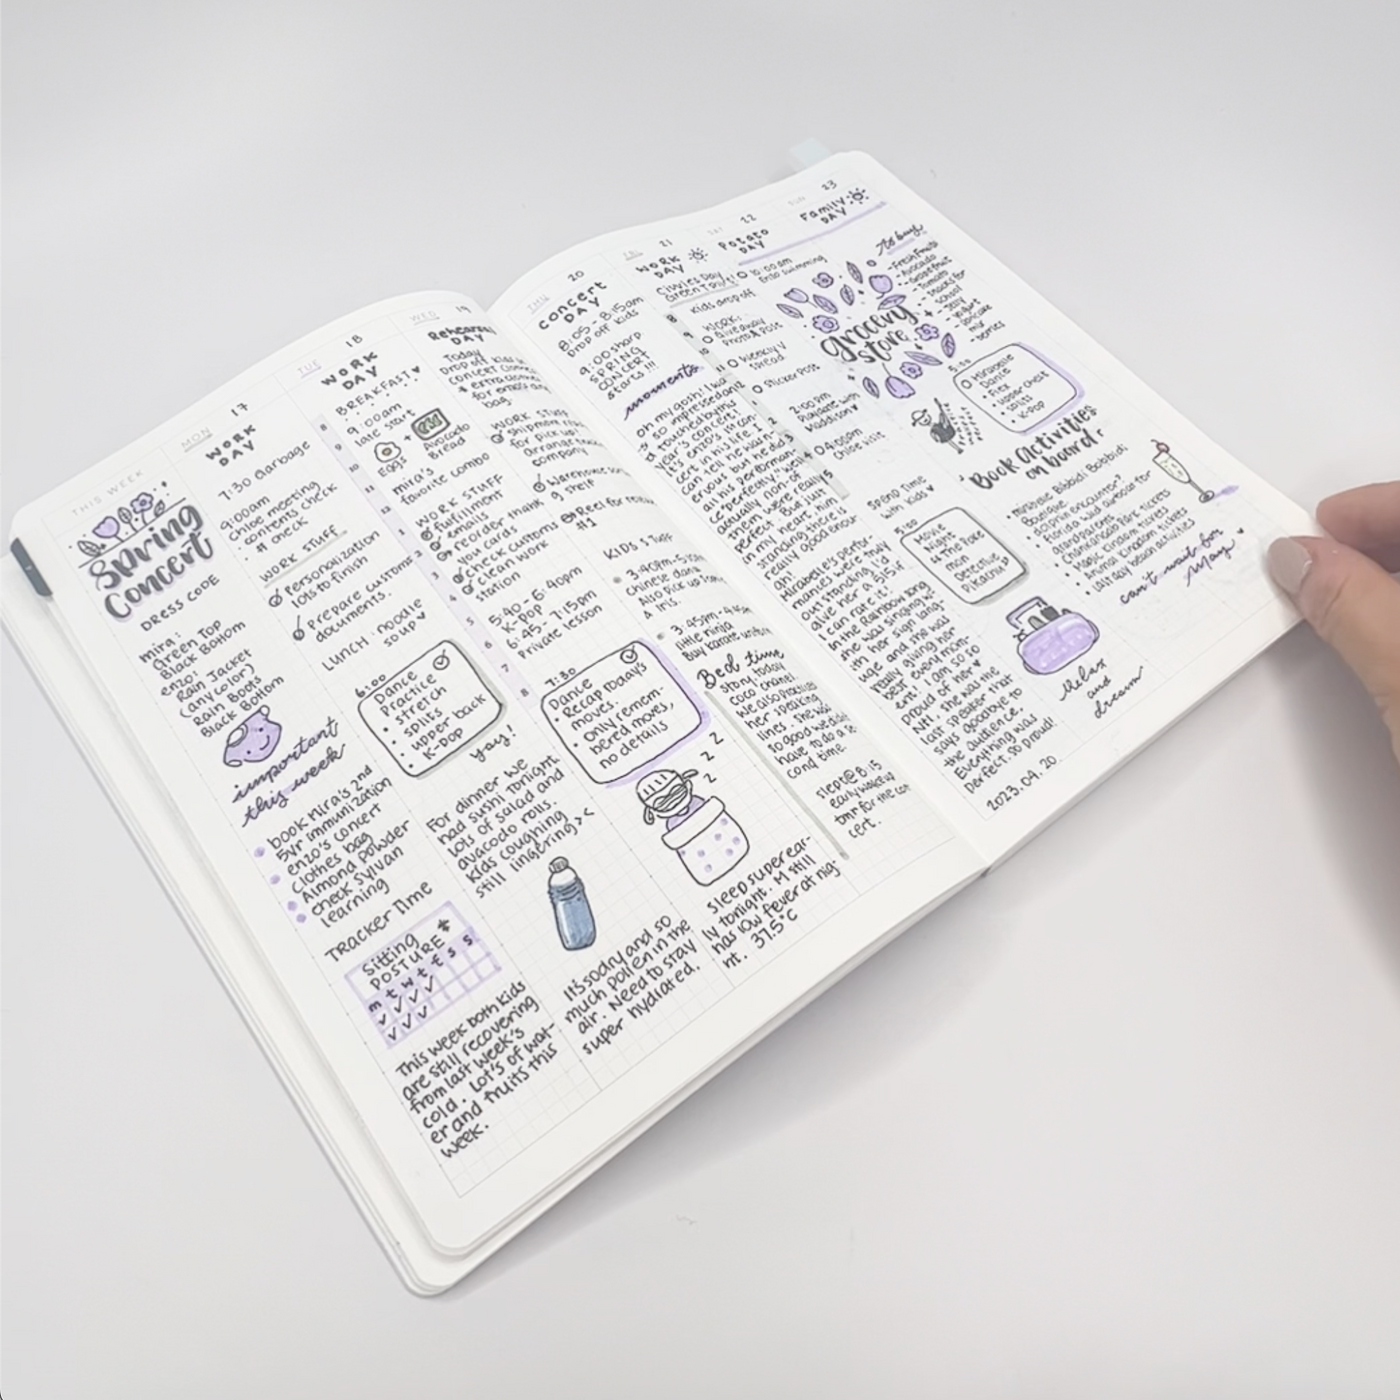 THIS WEEK
Spring
Concert
DRESS CODE
mira:
Green Top
Black Bottom
enzo:
Rain Jacket
(any color)
Rain Boots
Black Bottom
important
this week
book mira's 2nd
5yr immunization
enzo's concert
clothes bag
Almond powder
check Sylvan
learning
TRACKER TIME
Sitting
POSTURE
m t w t f s s
This week both kids
are still recovering
from last week's
cold. Lot's of wat-
er and fruits this
week.
MON
17
WORK
DAY
7:30 Garbage
9:00am
Chloe meeting
contents check
WORK STUFF
Personalization
lots to finish
Prepare customs
documents.
LUNCH: noodle
soup
6:00
Dance
Practice
stretch
splits
upper back
K-Pop
yay!
For dinner we
had sushi tonight.
Lots of salad and
avacado rolls.
Kids coughing
still lingering ><
It's so dry and so
much pollen in the
air. Need to stay
super hydrated.
TUE
18
WORK
DAY
BREAKFAST
9:00am
late start
Eggs
+
Avocado
Bread
mira's
favorite combo
WORK STUFF
fulfillment
emails
reorder thank
you cards
check customs
clean work
station
5:40-6:40pm
K-Pop
6:45-7:15pm
Private lesson
7:30
Dance
Recap today's
moves.
only remem-
bered moves,
no details
z z
z
sleep super ear-
ly tonight. M still
has low fever at nig-
ht. 37.5°C
WED
19
Rehearsal
DAY
Today
Drop off kids
concert
extra
for enzo's
bag.
WORK STUFF
Shipment
for pick up
Arrange
company
Warehouse
9 shelf
Reel for
#1
KIDS STUFF
3:40pm-
Chinese dance
Also pick up
& Iris.
3:45pm-
little ninja
Buy karate
Bed time
story today
coco chanel.
We also practiced
her speaking
lines. She was
so good we didn't
have to do a se-
cond time.
slept @ 8:15
early wakeup
tmr for the con
cert.
THU
20
concert
DAY
8:05-8:15am
Drop off kids
9:00 sharp
SPRING
CONCERT
starts!!!
moments
oh my gosh! I was
so impressed and
touched by this
year's concert!
It's enzo's 1st con-
cert in his life. I
can tell he was n-
ervous but he did
all his performan-
ce perfectly. "well
actually non-of
them were really
perfect" But just
in my heart, him
standing there is
really good enou-
gh!
Mirabelle's perfor-
mances were truly
out standing. I'd
give her a 5/5 if
I can rate it!
In the Rainbow song
she was singing w-
ith her sign lang-
uage and she was
really giving her
best every mom-
ent! I am so so
proud of her
NTL, she was the
last speaker that
says goodbye to
the audience.
Everything was
perfect. so proud!
2023.04.20.
FRI
21
WORK
DAY
Civvies Day
Green Day!!
Kids drop off
WORK:
Giveaway
Photo & Post
Weekly V
Spread
Sticker Post
2:00pm
Playdate with
Maddison
04:00pm
Chloe visit
Spend Time
with kids
5:00
Movie
Night
The Pokemon
Detective
Pikachu
Relax
and
dream
SAT
22
Potato
DAY
10:00am
Enzo swimming
grocery
store
5:30
Mirabelle
Dance
Flex
upper chest
splits
K-Pop
Book Activities
on board:
Mirabelle Bibbidi Bobbidi
Boutique
dolphin encounter?
Florida wild airboat for
grandparents
Magic Kingdom tickets
Animal Kingdom tickets
1/4 day beach activities
can't wait for
May.
SUN
23
Family
DAY
to buy
Fresh Fruits
Avocado
Grapefruit
Tomato
Snacks for
school
Jelly
Yogurt
cupcake
mix
berries